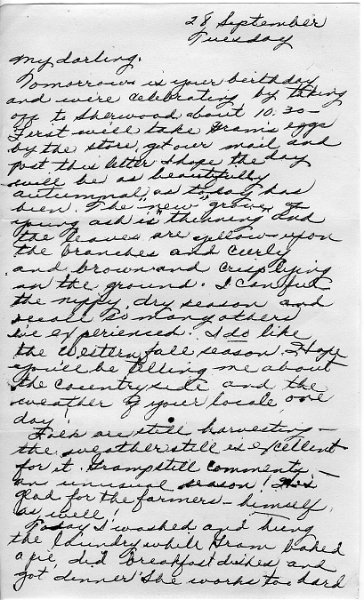 28 September
Tuesday
My darling,
Tomorrow is your birthday
and we're celebrating by taking
off to Sherwood about 10:30—
First will take Gram's eggs
by the store, get our mail and
post this letter. I hope the day
will be as beautifully
autumnal as today has
been. The "new" grove of
young ash is thinning and
the leaves are yellow upon
the branches and curly
and brown and crisp lying
on the ground. I can feel
the nippy, dry season and
recall so many others
I've experienced. I do like
the Western fall season. Hope
you'll be telling me about
the countryside and the
weather of your locale, one
day!
Folk are still harvesting—
the weather still is excellent
for it. Gramp still comments,—
an unusual season! He's
glad for the farmers—himself,
as well!
Today I washed and hung
the laundry while Gram baked
a pie, did breakfast dishes and
got dinner. She works too hard